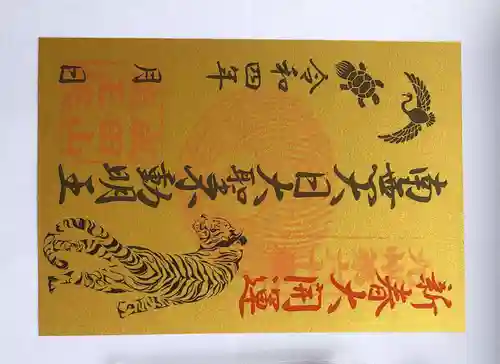 新春大開運
南無大日大聖不動明王
令和四年 月 日